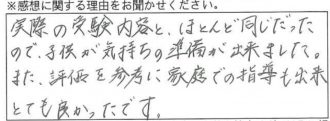 ※感想に関する理由をお聞かせください。
実際の受験内容と、ほとんど同じだった
ので、子供が気持ちの準備が出来ました。
また、評価を参考に家庭での指導も出来
とても良かったです。